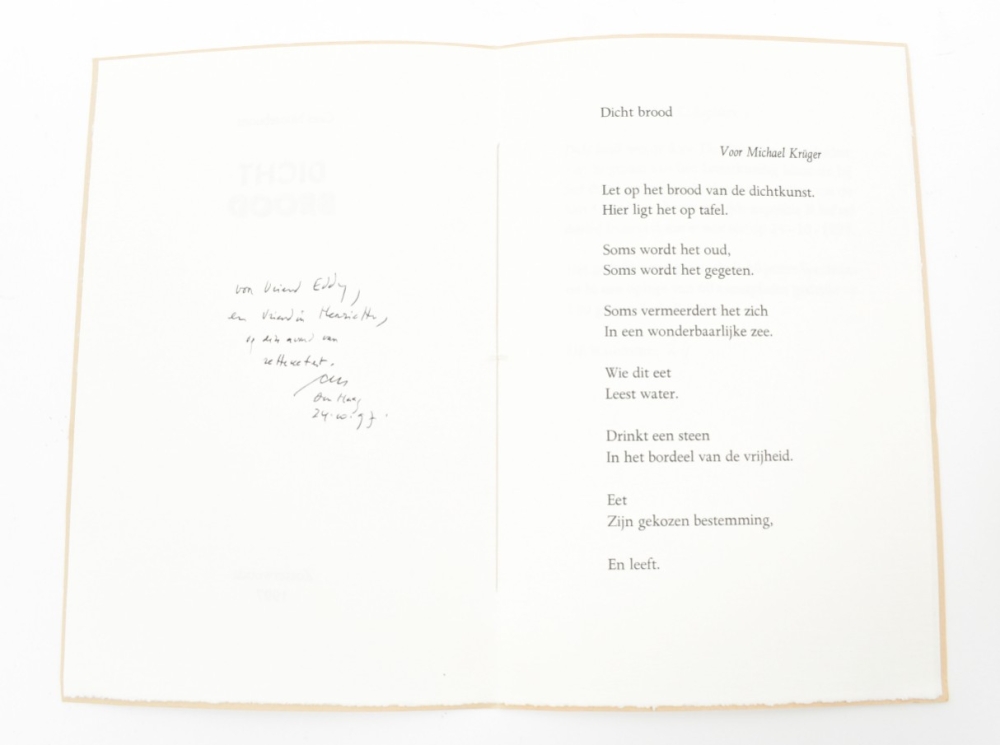 von vriend Eddy,
en vriendin Henriette,
op deze avond van
Den Haag
Dicht brood
Voor Michael Krüger
Let op het brood van de dichtkunst.
Hier ligt het op tafel.
Soms wordt het oud,
Soms wordt het gegeten.
Soms vermeerdert het zich
In een wonderbaarlijke zee.
Wie dit eet
Leest water.
Drinkt een steen
In het bordeel van de vrijheid.
Eet
Zijn gekozen bestemming,
En leeft.